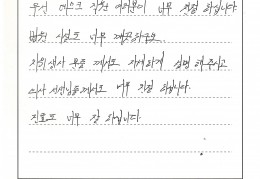 우선 데스크 직원 여러분이 너무 친절 하십니다.
병원 시설도 너무 깨끗하구요.
치위생사 분들 께서도 자세하게 설명 해주시고
의사 선생님들께서도 너무 친절 하십니다.
진료도 너무 잘 하십니다.